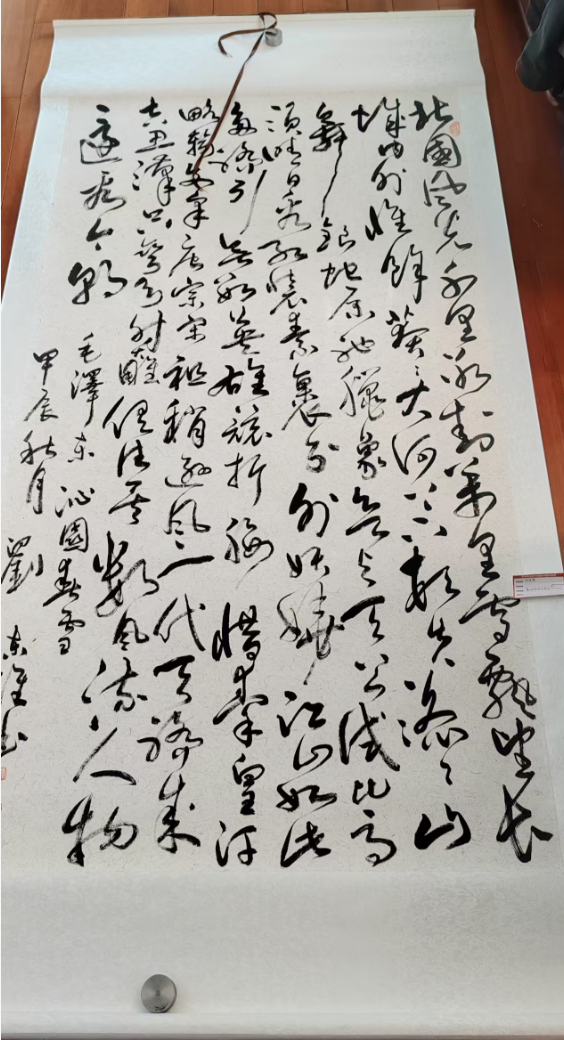 北國風光千里冰封萬里雪飄望長
城內外惟餘莽々大河上下頓失滔々山
舞銀蛇原馳臘象欲與天公試比高
須晴日看紅裝素裹分外妖嬈江山如此
多嬌引無數英雄競折腰惜秦皇汗
略輸文采唐宗宋祖稍遜風一代天驕成
吉思漢只彎弓射雕俱往矣數風流人物
還看今朝
毛澤東沁園春雪
甲辰秋月劉東